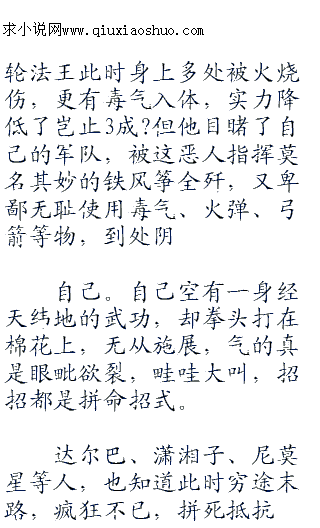 求小说网www.qiuxiaoshuo.com
轮法王此时身上多处被火烧
伤，更有毒气入体，实力降
低了岂止3成?但他目睹了自
己的军队，被这恶人指挥莫
名其妙的铁风筝全歼，又卑
鄙无耻使用毒气、火弹、弓
箭等物，到处阴
自己。自己空有一身经
天纬地的武功，却拳头打在
棉花上，无从施展，气的真
是眼毗欲裂，哇哇大叫，招
招都是拼命招式。
达尔巴、潇湘子、尼莫
星等人，也知道此时穷途末
路，疯狂不已，拼死抵抗